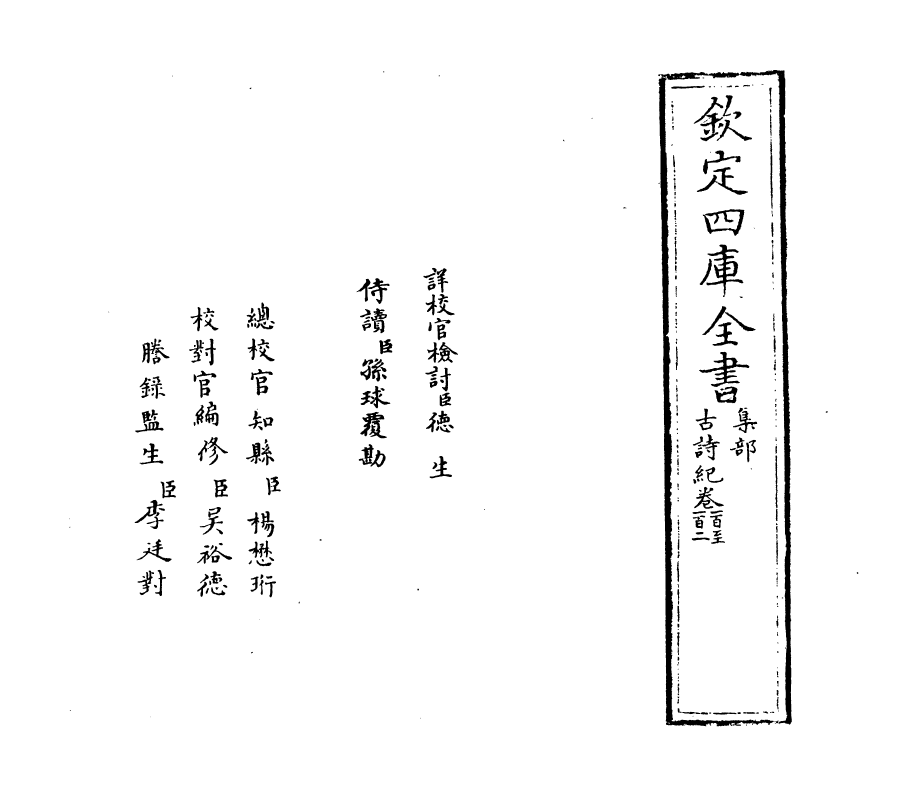 欽定四庫全書
集部
古詩紀卷一百至一百二
詳校官檢討臣德生
侍讀臣孫球覆勘
總校官知縣臣楊懋珩
校對官編修臣吴裕德
謄錄監生臣李廷對